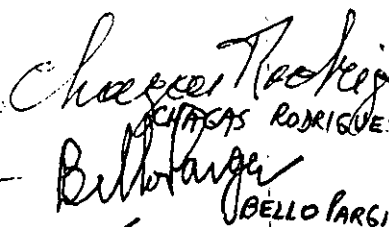 Chagas Rodrig
CHAGAS RODRIGUE
Bello Parga
BELLO PARGI